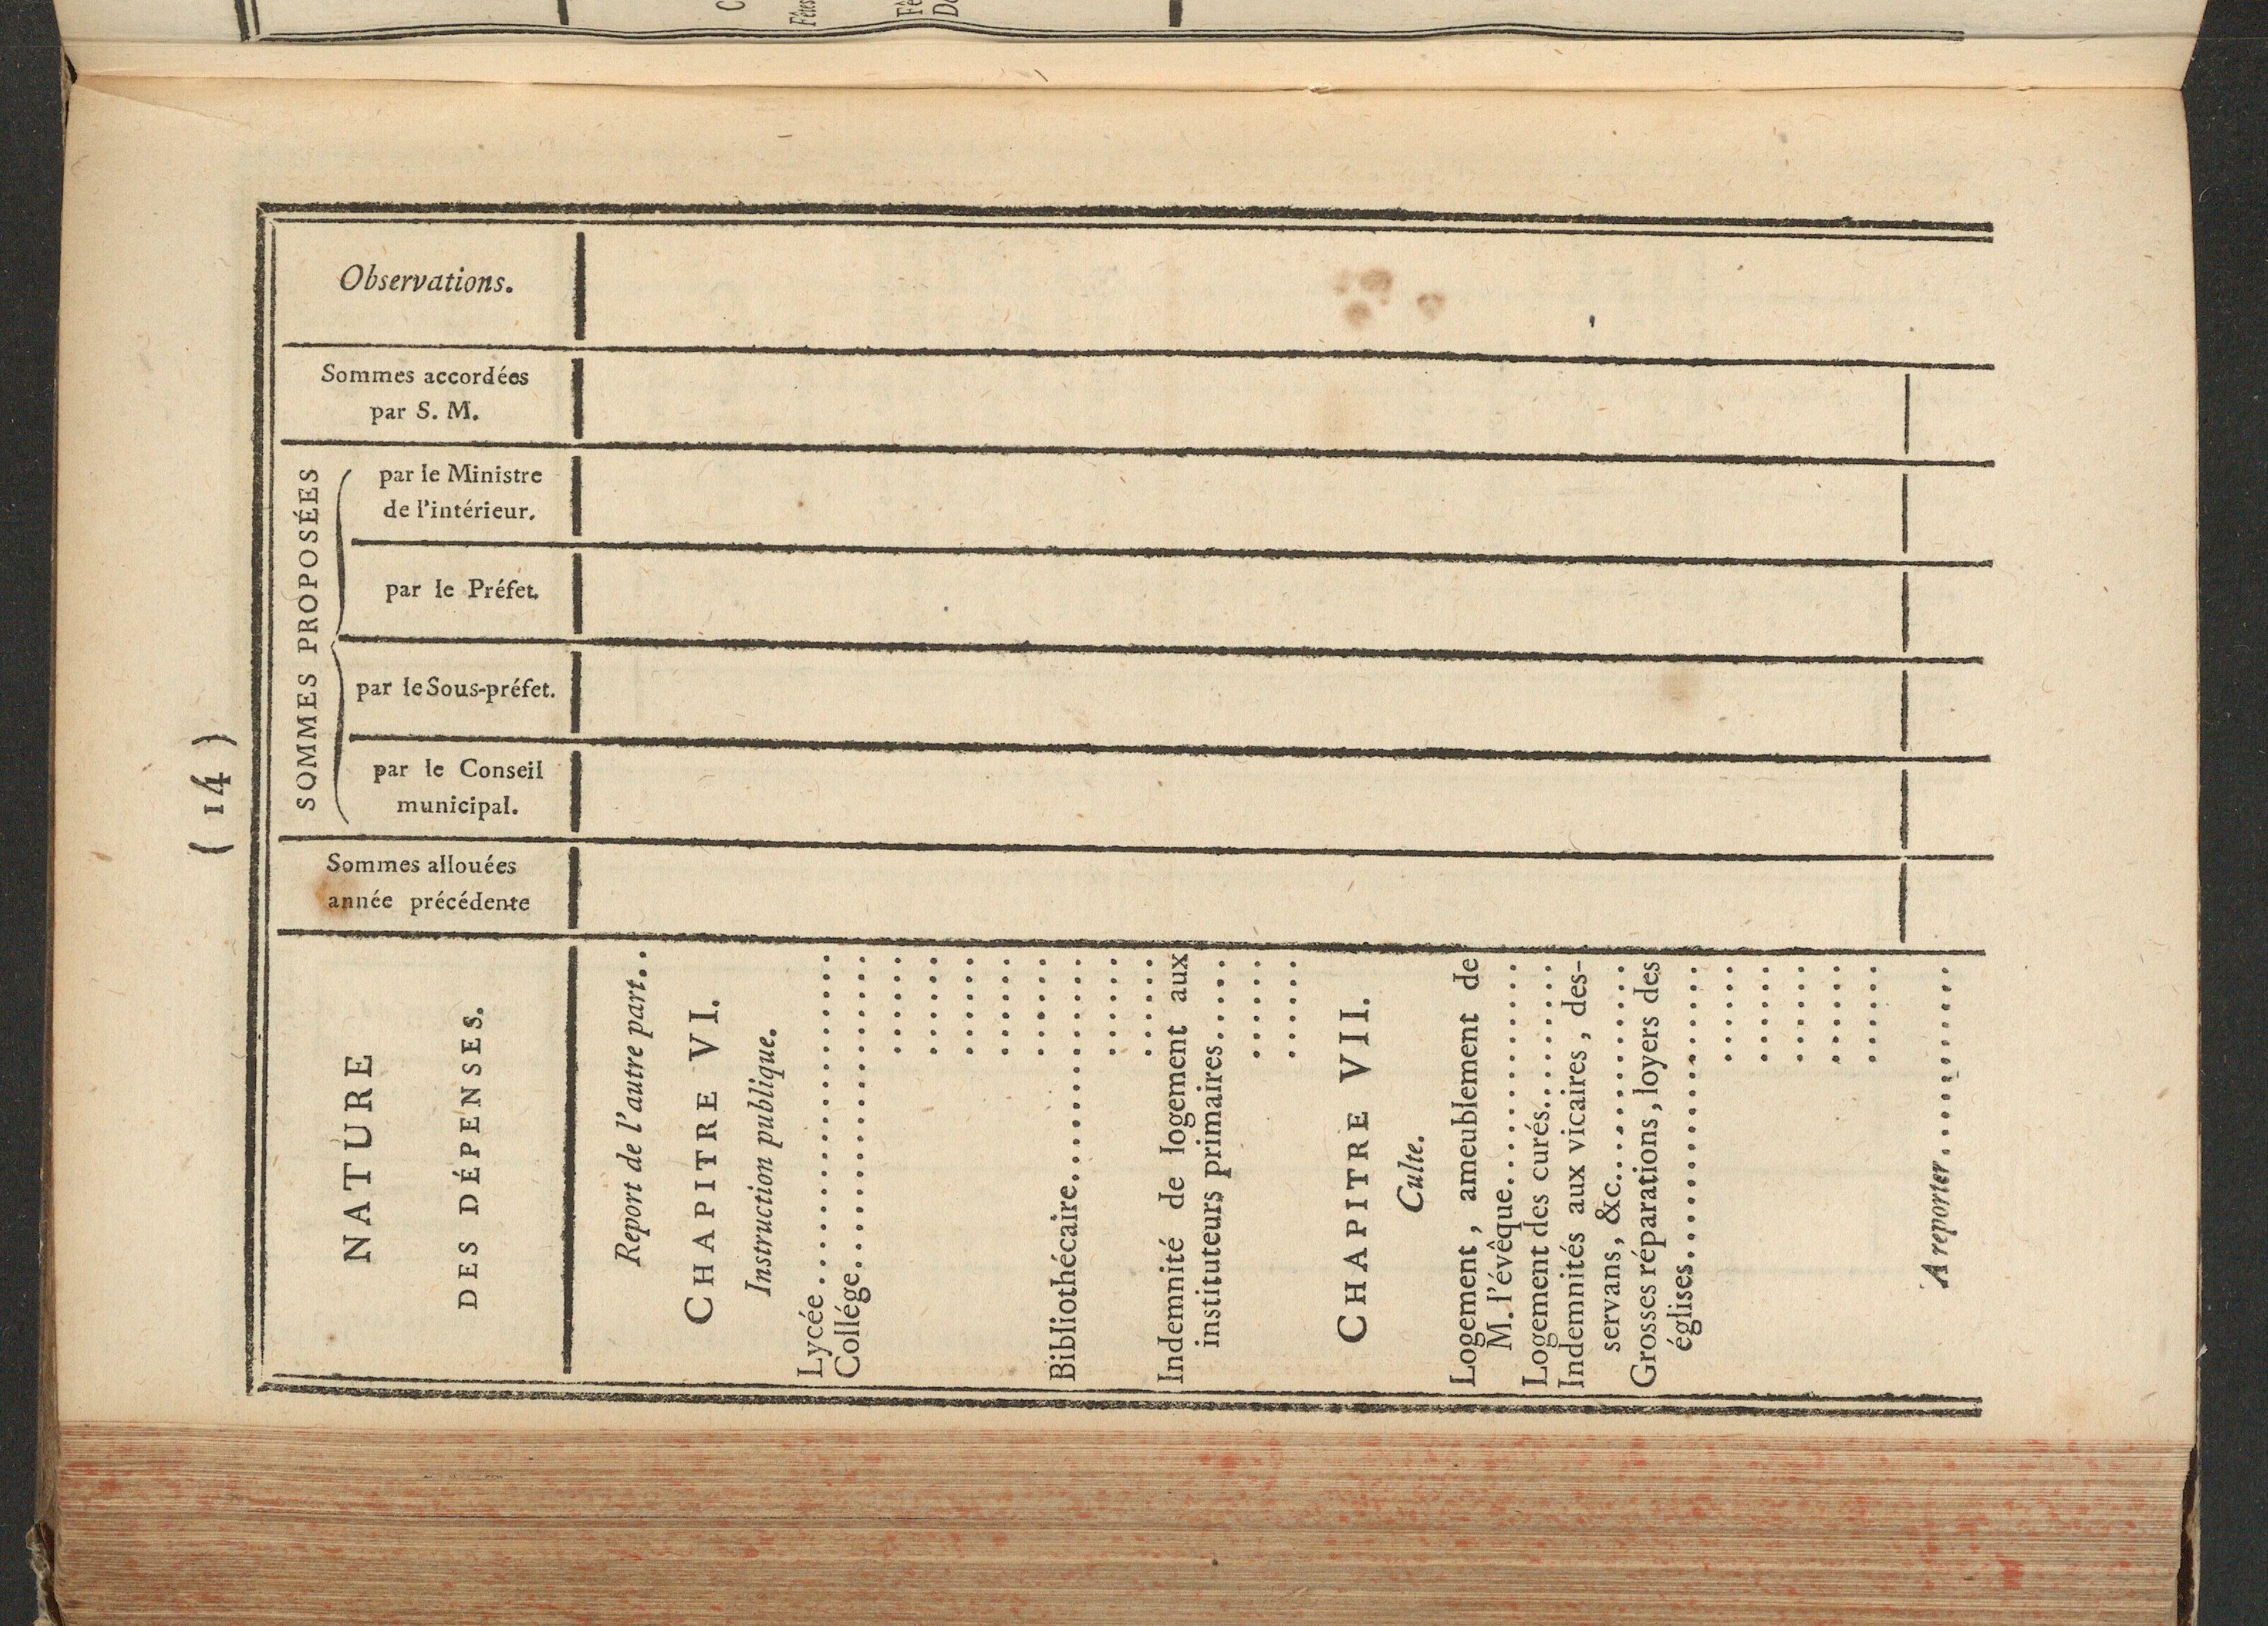 ( 14 )
NATURE
DES DÉPENSES.
Sommes allouées
année précédente
SOMMES PROPOSÉES
par le Conseil
municipal.
par le Sous-préfet.
par le Préfet.
par le Ministre
de l'intérieur.
Sommes accordées
par S. M.
Observations.
Report de l'autre part..
CHAPITRE VI.
Instruction publique.
Lycée ....................
Collége...................
......
......
......
......
......
Bibliothécaire..............
......
......
Indemnité de logement aux
instituteurs primaires.....
......
......
CHAPITRE VII.
Culte.
Logement, ameublement de
M. l'évêque..............
Logement des curés.........
Indemnités aux vicaires, des-
servans, &c..............
Grosses réparations, loyers des
églises...................
......
......
......
......
......
A reporter............